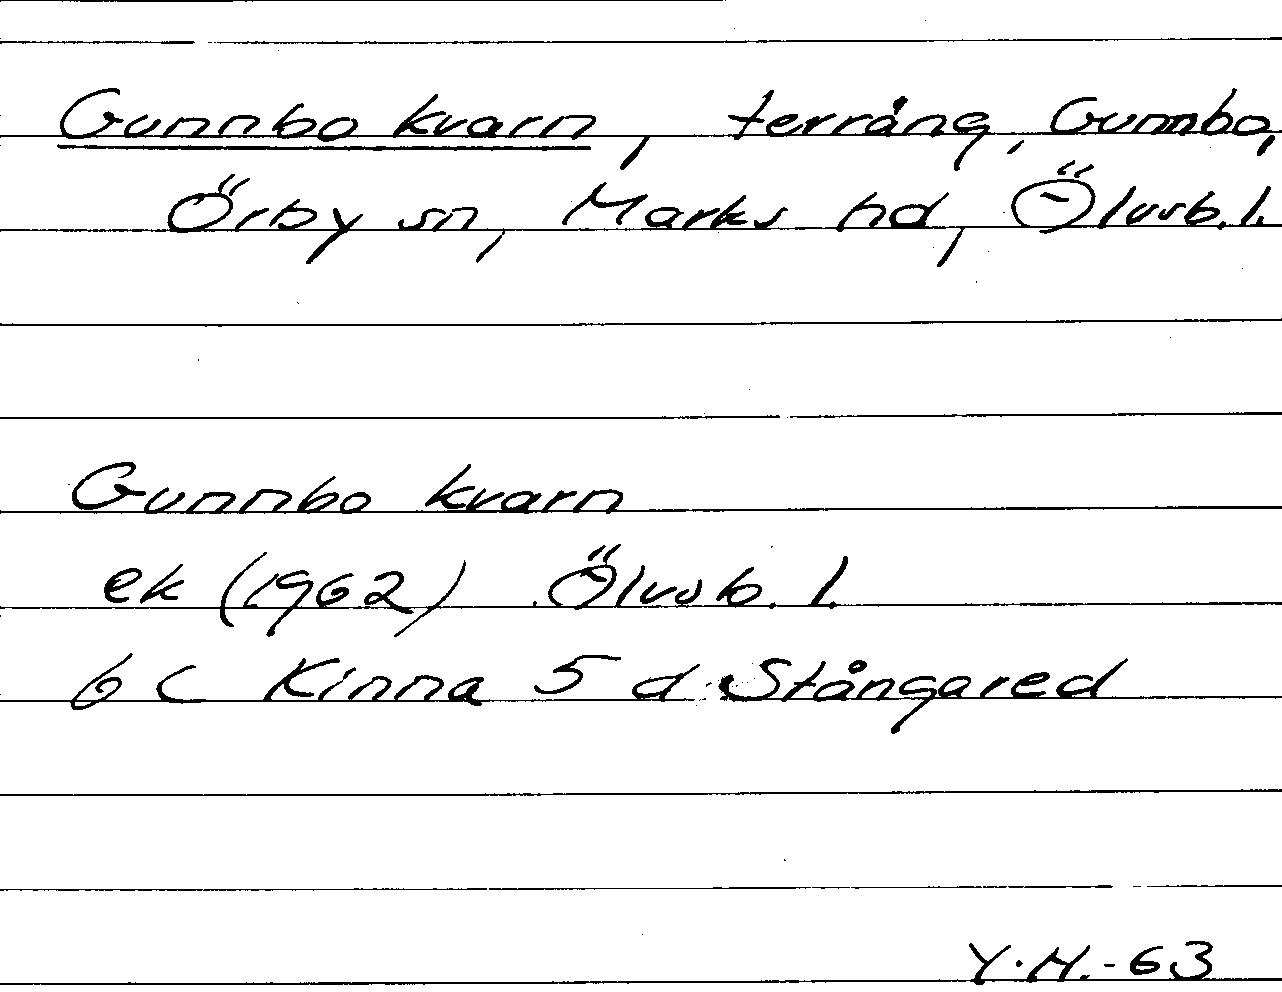 Gunnbo kvarn, terräng, Gunnbo,
Örby sn, Marks hd, Älvsb. l.
Gunnbo kvarn
ek (1962) Älvsb. l.
6 C Kinna 5 d Stångared
Y.H.-63